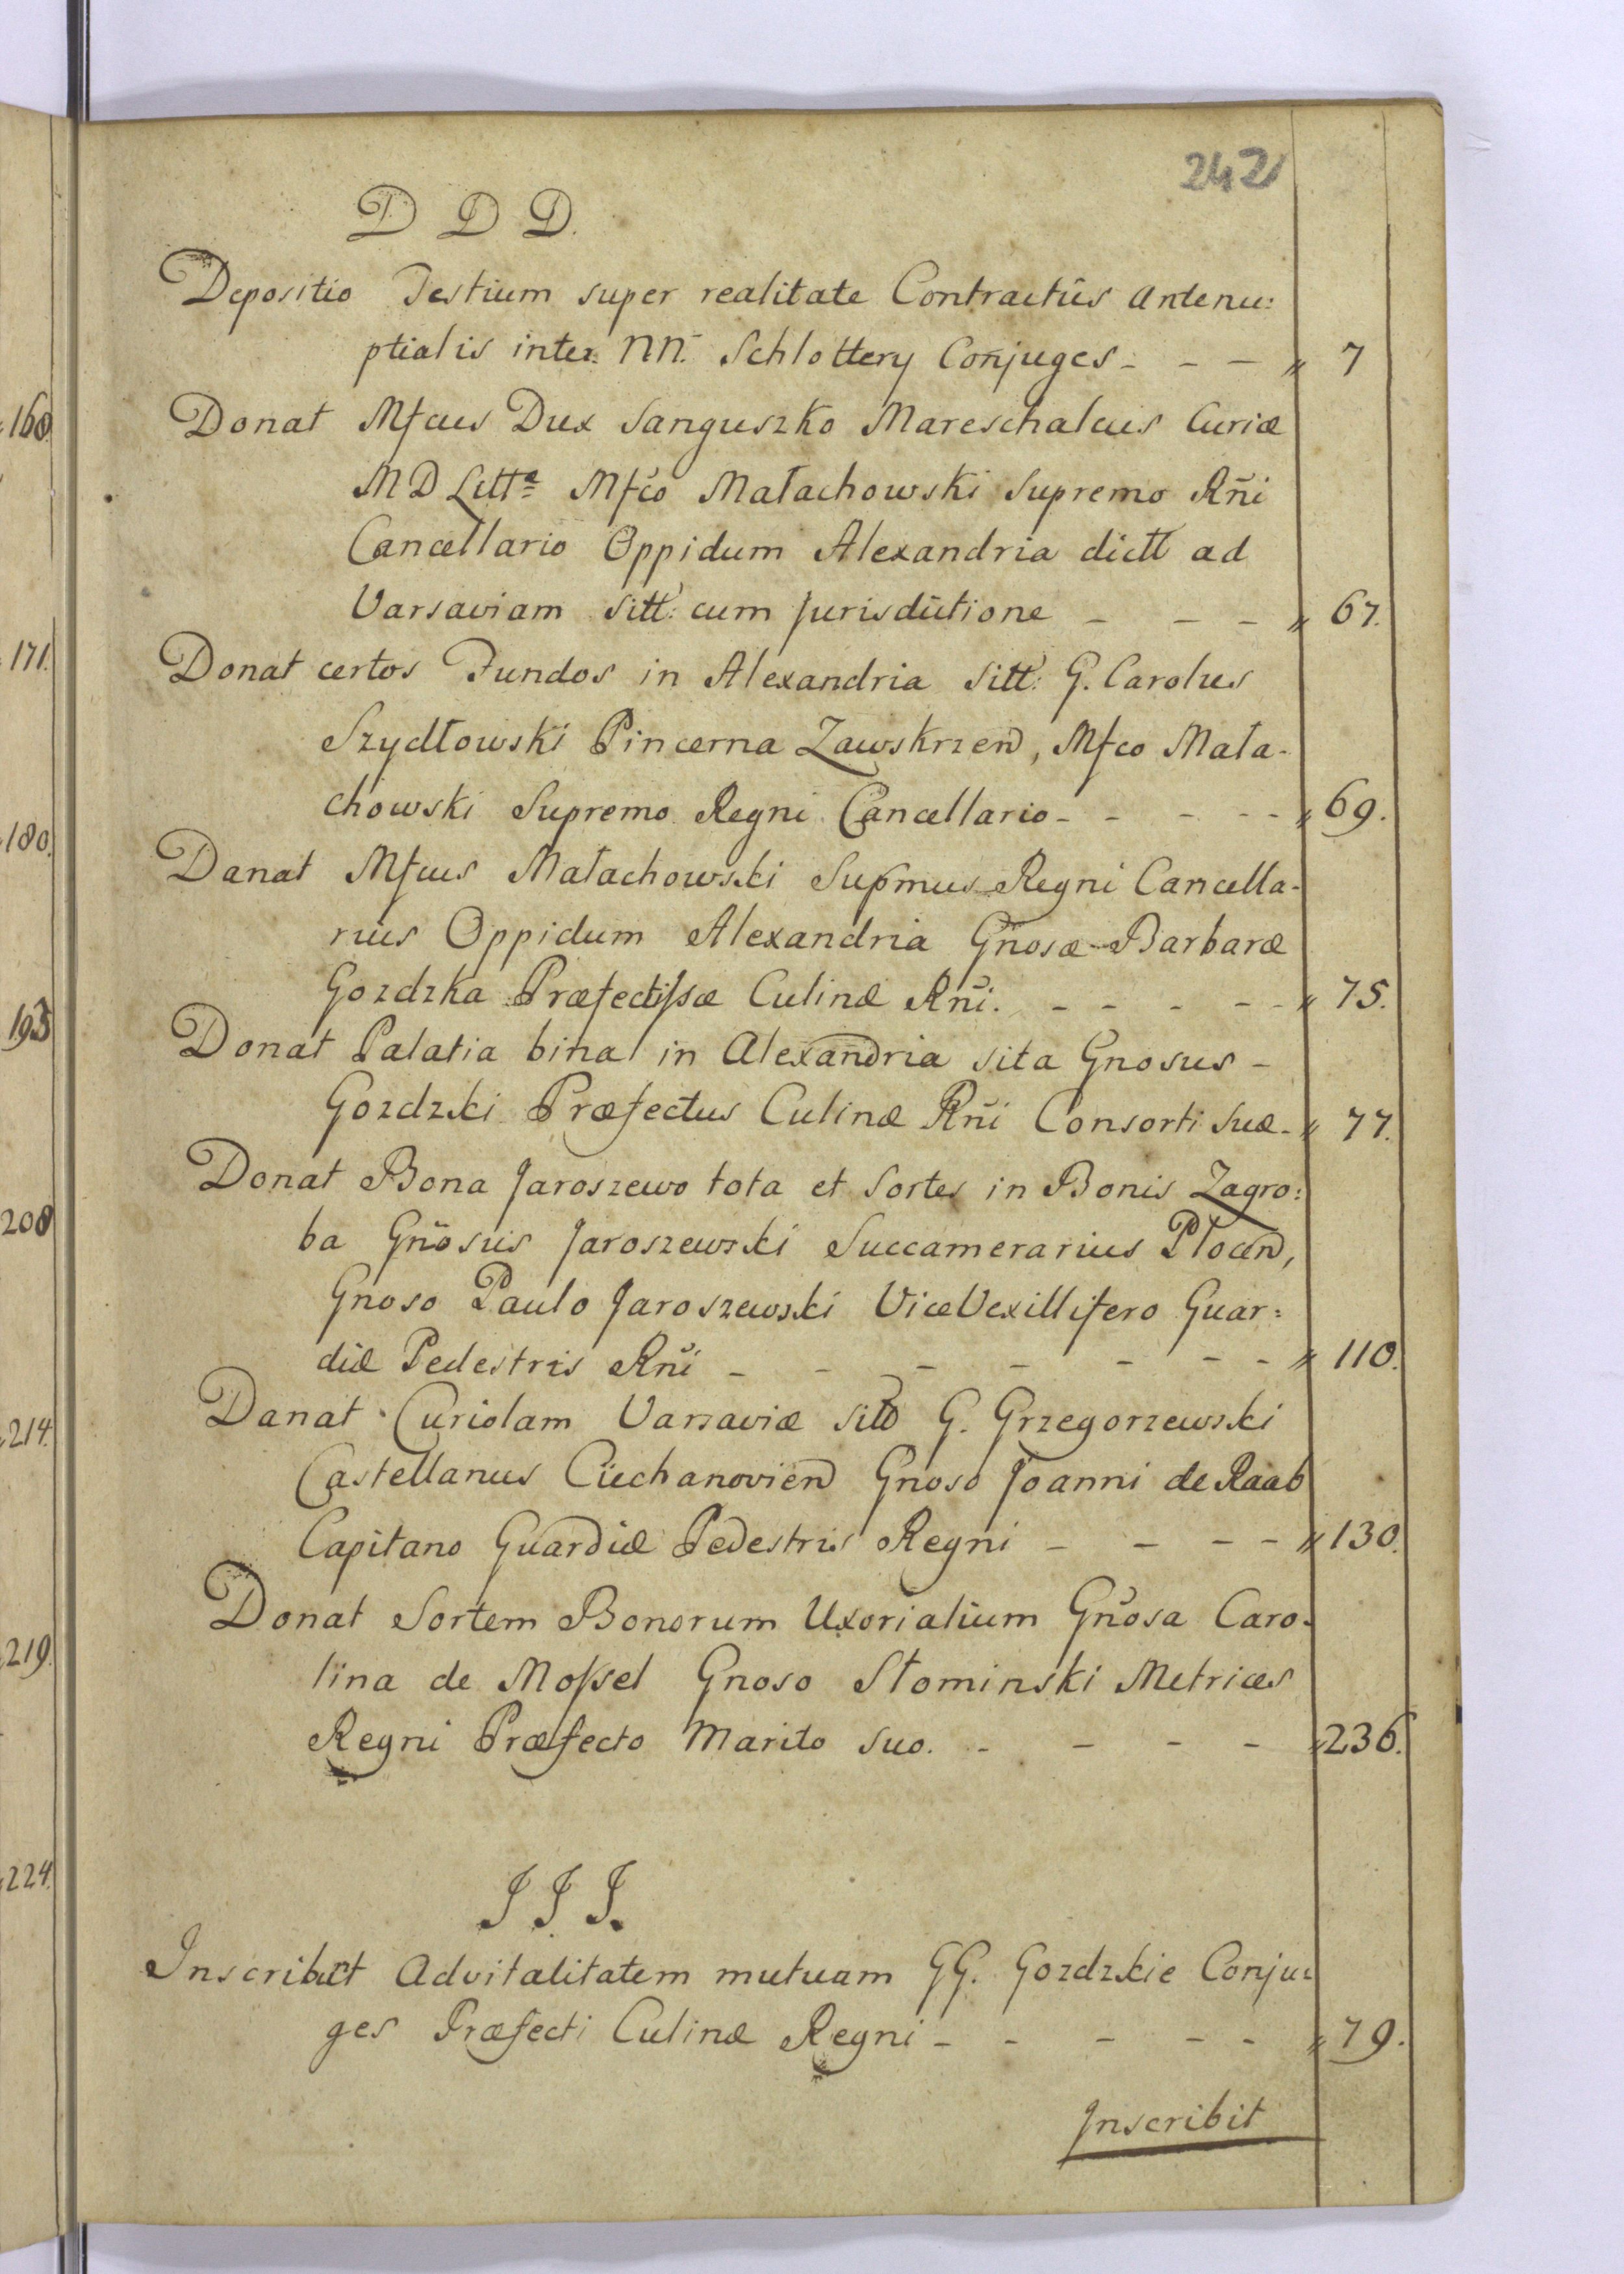 242
D D D.
Depositio Testium super realitate Contractûs antenu:
ptialis inter NN. Schlottery Conjuges - - - " 7
Donat Mfcus Dux Sanguszko Mareschalcus Curiæ
MD Litt: Mfco Małachowski Supremo Rñi
Cancellario Oppidum Alexandria dictt ad
Varsaviam sitt: cum Jurisdictione - - - " 67.
Donat certos Fundos in Alexandria sitt: G. Carolus
Szydłowski Pincerna Zawskrzen, Mfco Mała-
chowski Supremo Regni Cancellario - - - - - " 69.
Donat Mfcus Małachowski Supmus Regni Cancella-
rius Oppidum Alexandria Gñosæ Barbaræ
Gozdzka Præfectissæ Culinæ Rñi. - - - - - " 75.
Donat Palatia bina in Alexandria sita Gnosus -
Gozdzki Præfectus Culinæ Rñi Consorti suæ - " 77.
Donat Bona Jaroszewo tota et Sortes in Bonis Zagro:
ba Gñosus Jaroszewski Succamerarius Płocen,
Gnoso Paulo Jaroszewski ViceVexillifero Guar:
diæ Pedestris Rñi - - - - - - - " 110.
Donat Curiolam Varsaviæ sitt G. Grzegorzewski
Castellanus Ciechanovien Gnoso Joanni de Raab
Capitano Guardiæ Pedestris Regni - - - - " 130.
Donat Sortem Bonorum Uxorialium Gñosa Caro-
lina de Mossel Gnoso Słominski Metrices
Regni Præfecto Marito suo. - - - - " 236.
J J J.
Inscribunt Advitalitatem mutuam GG. Gozdzkie Conju:
ges Præfecti Culinæ Regni - - - - - " 79.
Inscribit
160.
171.
180.
193
208
214.
219.
224.